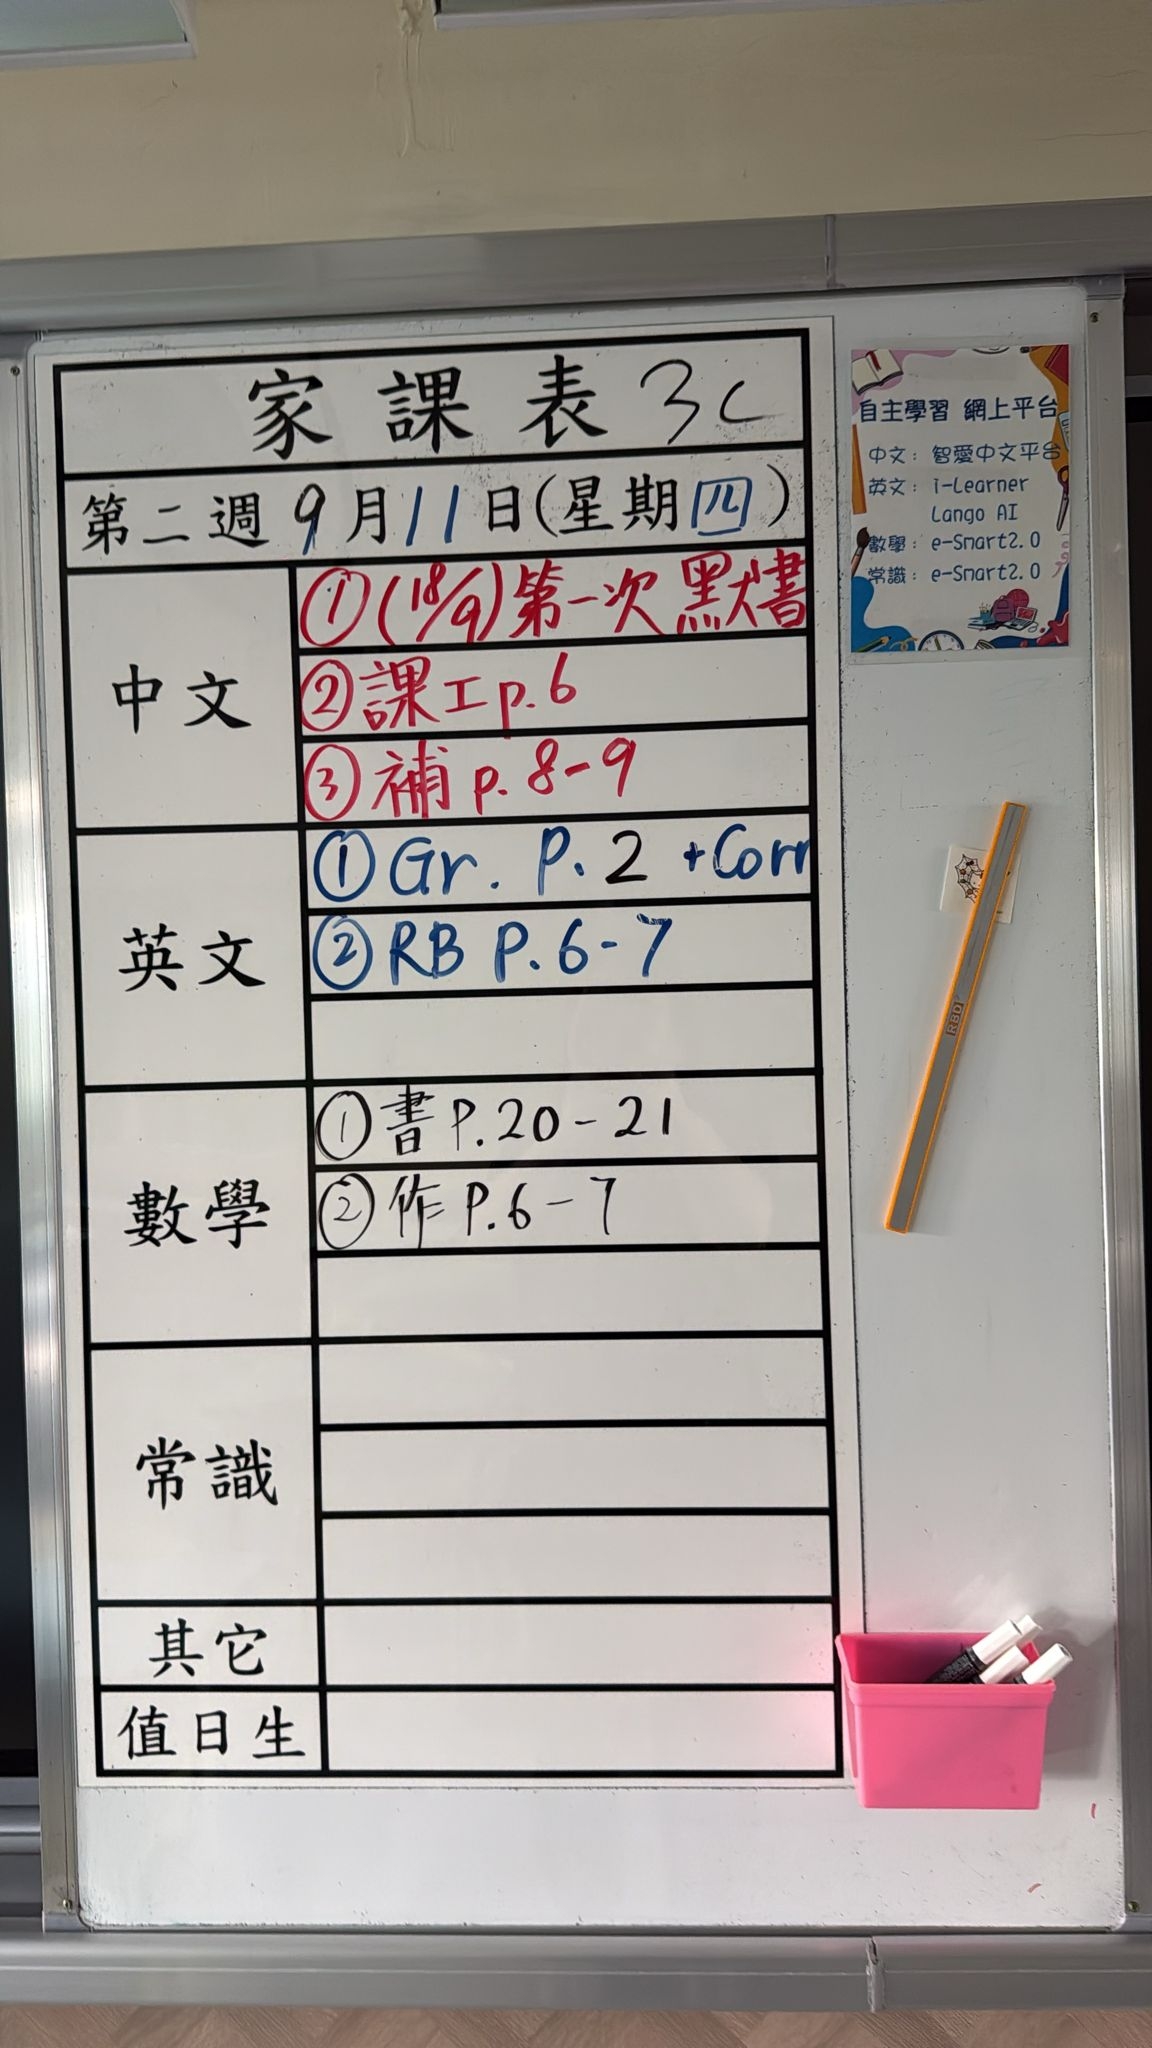 家課表 3C
第二週 9月11日(星期四)
中文
①(18/9)第一次默書
②課工p.6
③補 p.8-9
英文
①Gr. P.2 +Corr
②RB P.6-7
數學
①書P.20-21
②作P.6-7
常識
其它
值日生
自主學習 網上平台
中文：智愛中文平台
英文：i-Learner
Lango AI
數學：e-Smart2.0
常識：e-Smart2.0
RBD